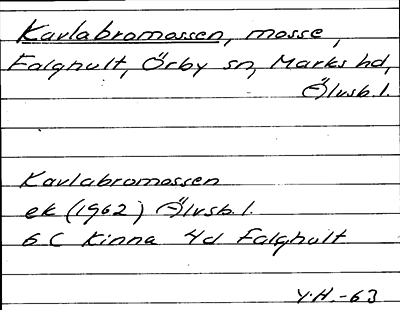 Kavlabromossen, mosse,
Falghult, Örby sn, Marks hd,
Älvsb. l.
Kavlabromossen
ek (1962) Älvsb. l.
6 C Kinna 4d Falghult
Y.H. -63